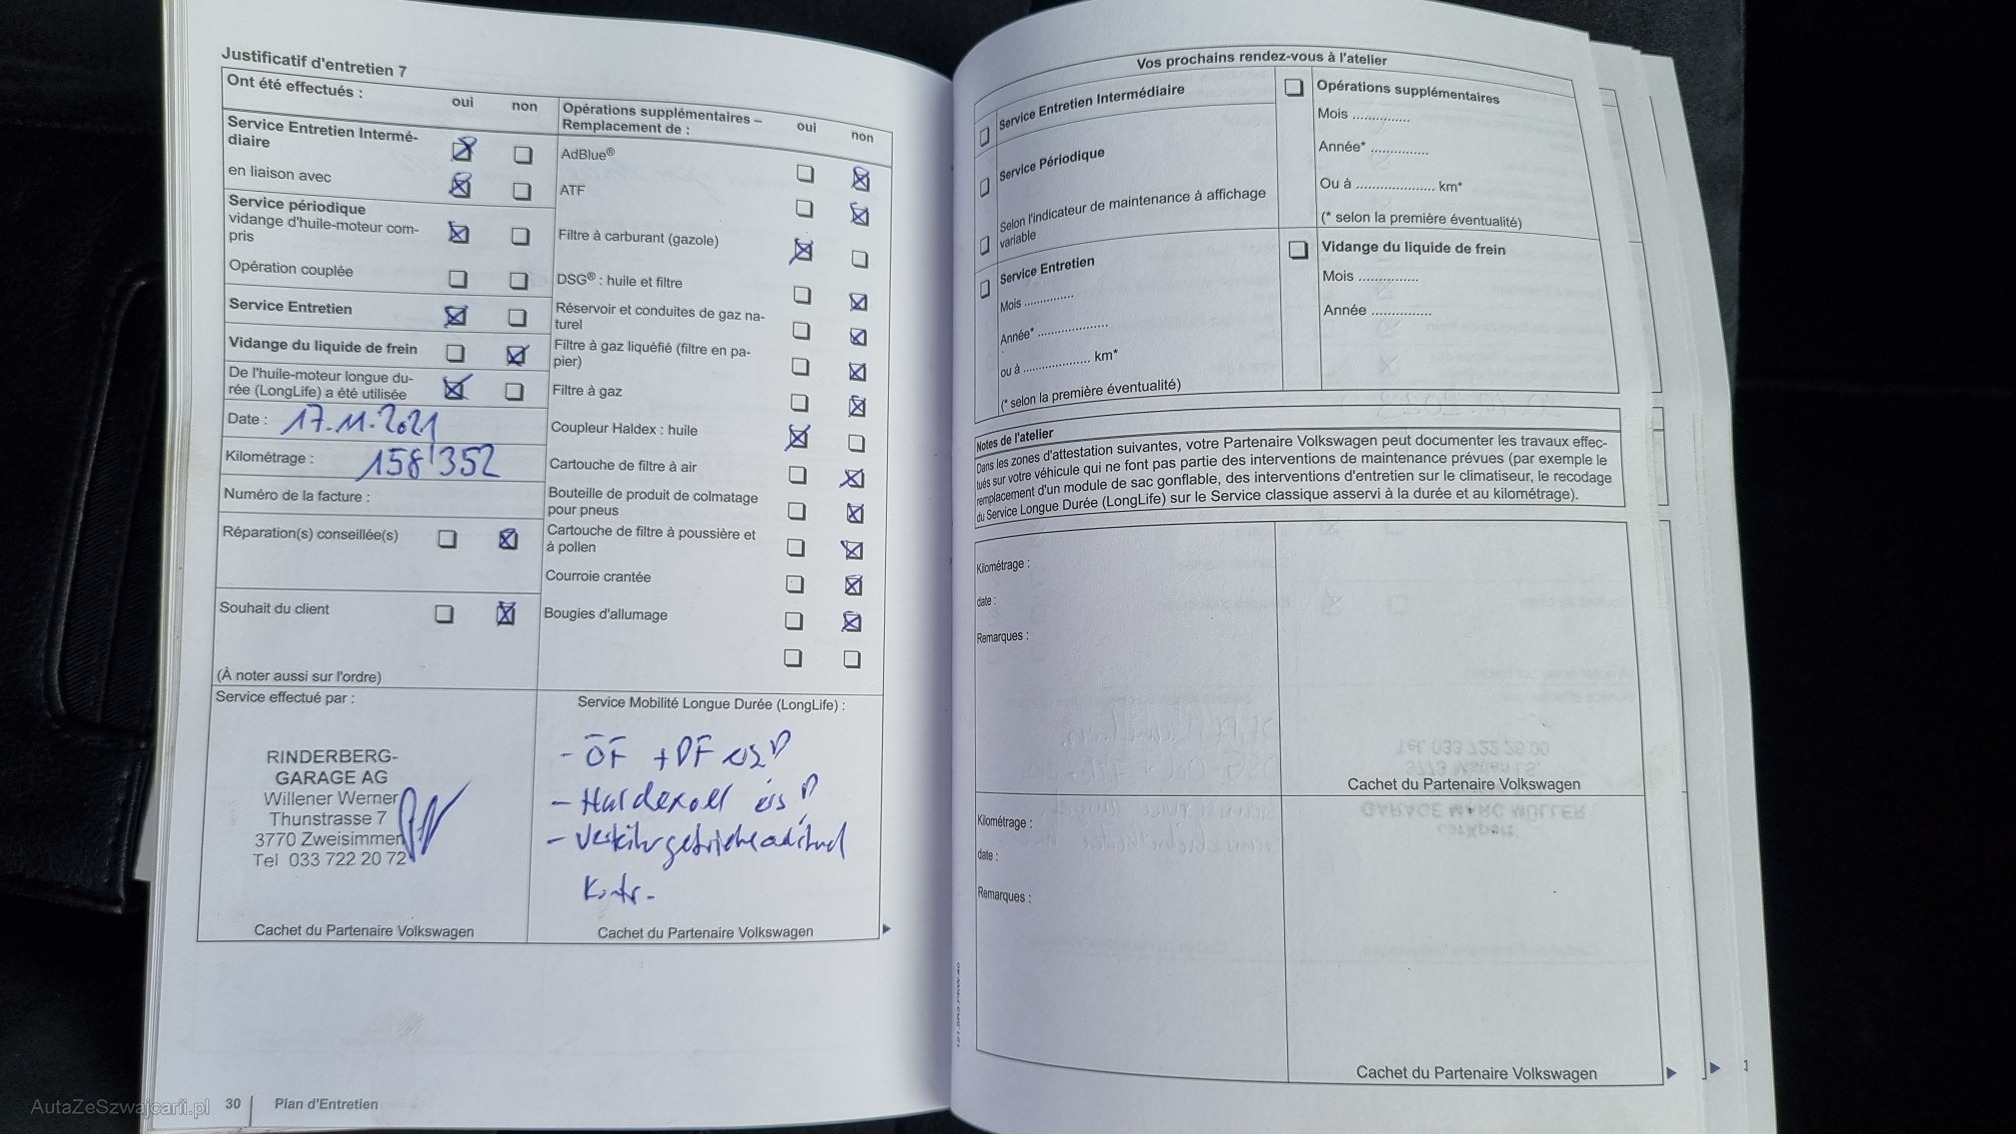 Justificatif d'entretien 7
Ont été effectués :
oui
non
Service Entretien Intermé-
diaire
en liaison avec
Service périodique
vidange d'huile-moteur com-
pris
Opération couplée
Service Entretien
Vidange du liquide de frein
De l'huile-moteur longue du-
rée (LongLife) a été utilisée
Date : 17.11.2021
Kilométrage : 158'352
Numéro de la facture :
Réparation(s) conseillée(s)
Souhait du client
(À noter aussi sur l'ordre)
Opérations supplémentaires –
Remplacement de :
oui
non
AdBlue®
ATF
Filtre à carburant (gazole)
DSG® : huile et filtre
Réservoir et conduites de gaz na-
turel
Filtre à gaz liquéfié (filtre en pa-
pier)
Filtre à gaz
Coupleur Haldex : huile
Cartouche de filtre à air
Bouteille de produit de colmatage
pour pneus
Cartouche de filtre à poussière et
à pollen
Courroie crantée
Bougies d'allumage
Service effectué par :
RINDERBERG-
GARAGE AG
Willener Werner
Thunstrasse 7
3770 Zweisimmen
Tel 033 722 20 72
Cachet du Partenaire Volkswagen
Service Mobilité Longue Durée (LongLife) :
- ÖF + DF
- Haldexoel
-
Kontr.
Cachet du Partenaire Volkswagen
30
Plan d'Entretien
AutaZeSzwajcarii.pl
Vos prochains rendez-vous à l'atelier
Service Entretien Intermédiaire
Service Périodique
Selon l'indicateur de maintenance à affichage
variable
Service Entretien
Mois ...............
Année* .....................
ou à .................... km*
(* selon la première éventualité)
Opérations supplémentaires
Mois ...............
Année* ...............
Ou à ..................... km*
(* selon la première éventualité)
Vidange du liquide de frein
Mois ...............
Année ...............
Notes de l'atelier
Dans les zones d'attestation suivantes, votre Partenaire Volkswagen peut documenter les travaux effec-
tués sur votre véhicule qui ne font pas partie des interventions de maintenance prévues (par exemple le
remplacement d'un module de sac gonflable, des interventions d'entretien sur le climatiseur, le recodage
du Service Longue Durée (LongLife) sur le Service classique asservi à la durée et au kilométrage).
Kilométrage :
date :
Remarques :
Cachet du Partenaire Volkswagen
Kilométrage :
date :
Remarques :
Cachet du Partenaire Volkswagen